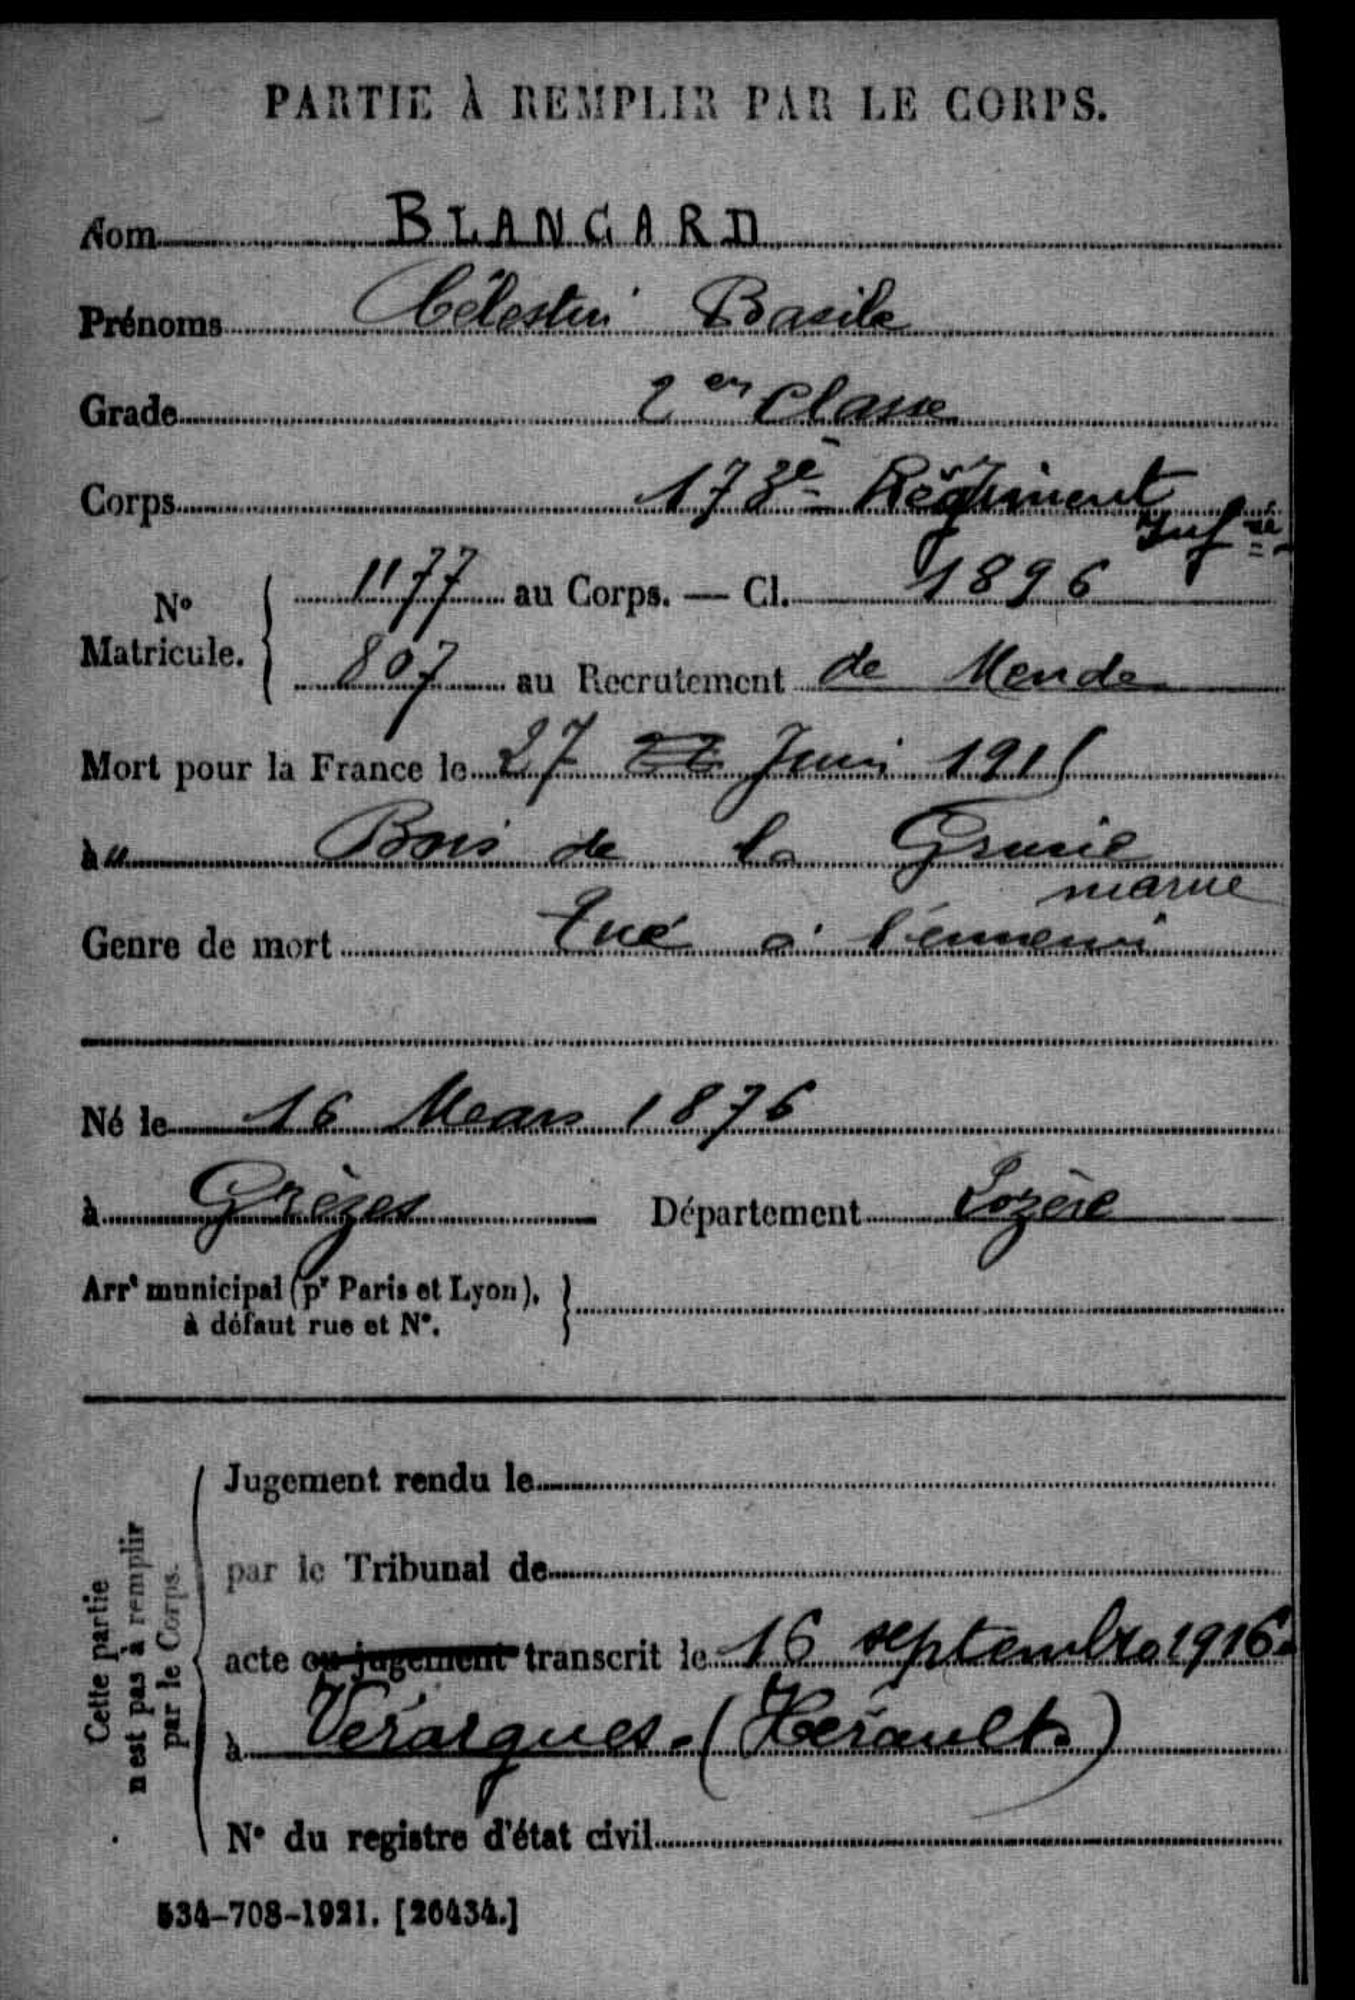 PARTIE À REMPLIR PAR LE CORPS.
Nom BLANCARD
Prénoms Célestin Basile
Grade 2em Classe
Corps 173e Régiment Infrie
N° Matricule. 1177 au Corps. — Cl. 1896
807 au Recrutement de Mende
Mort pour la France le 27 Juin 1915
à Bois de la Grurie
marne
Genre de mort Tué à l'ennemi
Né le 16 Mars 1876
à Grèzes Département Lozère
Arrt municipal (pr Paris et Lyon),
à défaut rue et N°.
Cette partie
n'est pas à remplir
par le Corps.
Jugement rendu le
par le Tribunal de
acte ou jugement transcrit le 16 septembre 1916.
à Vérargues. (Hérault)
N° du registre d'état civil
534-708-1921. [26434.]